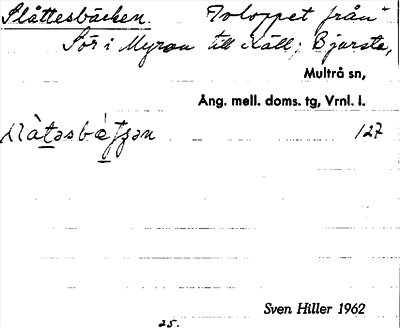 Slåttesbäcken. Toloppet från
Sör i Myran till Käll; Bjursta,
Multrå sn,
Ång. mell. doms. tg, Vrnl. l.
127
Sven Hiller 1962
25.